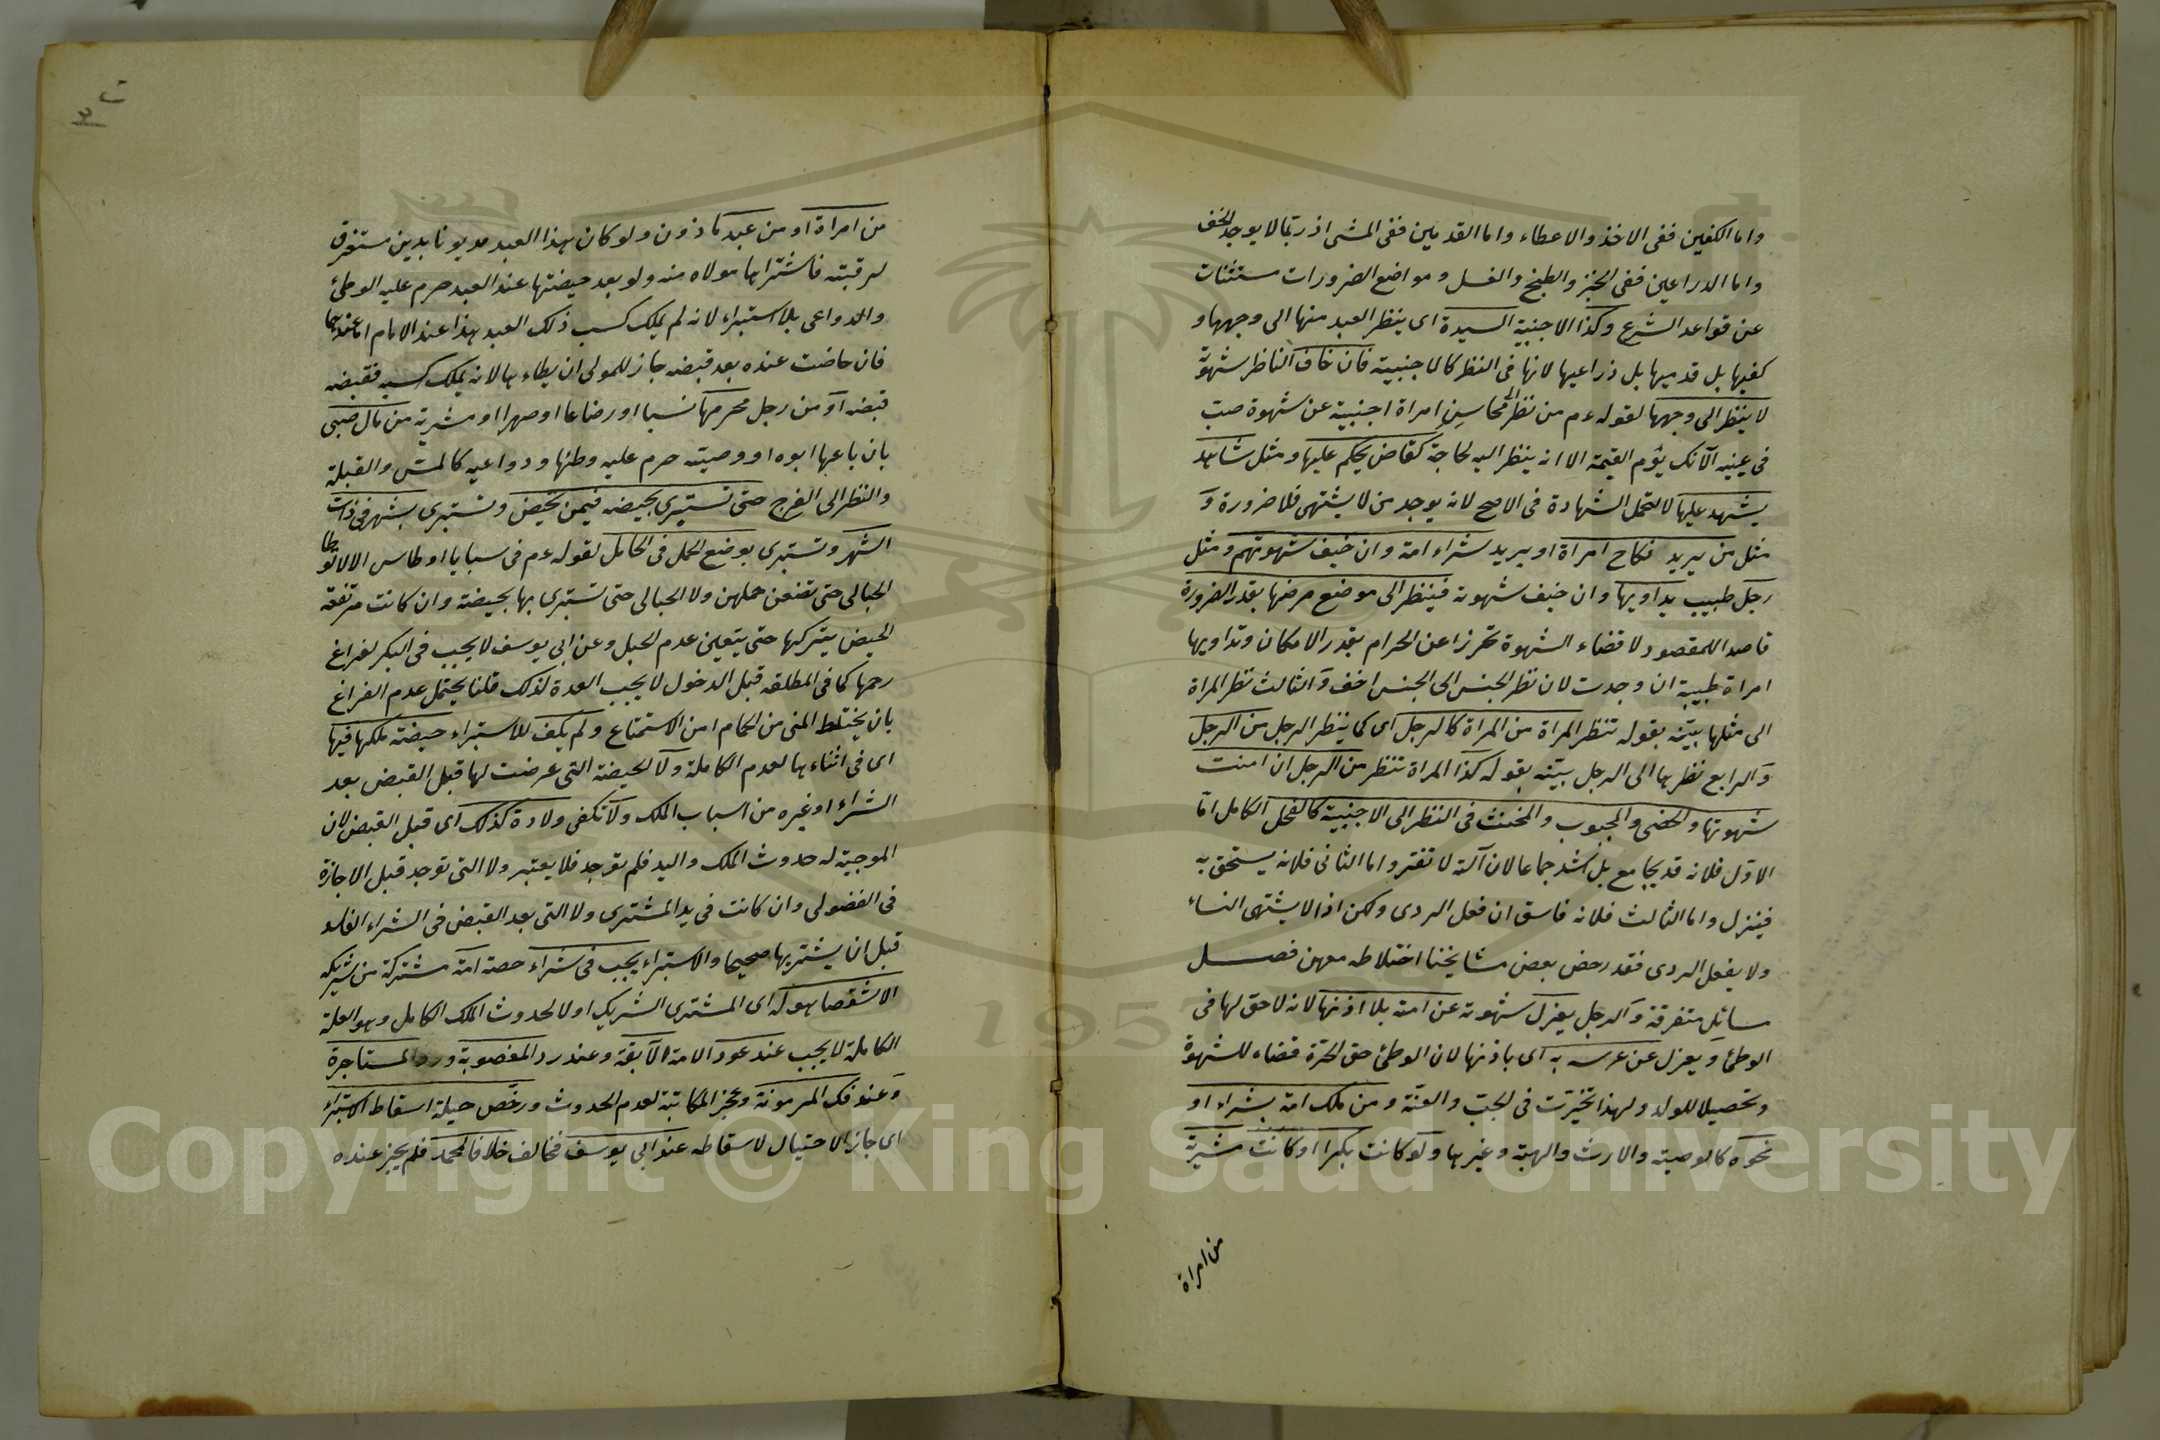 واما الكفين ففى الاخذ والاعطاء واما القدمين ففى المشى اذ ربما لا يوجد الخف
واما الدراعين ففى الخبز والطبخ والغسل ومواضع الضرورات مستثنات
عن قواعد الشرع وكذا الاجنبية السيدة اى ينظر العبد منها الى وجهها و
كفيها بل قدميها بل ذراعيها لانها فى النظر كالاجنبية فان خاف الناظر شهوة
لا ينظر الى وجهها لقوله عم من نظر الى محاسن امراة اجنبية عن شهوة صب
فى عينيه الآنك يوم القيمة الا انه ينظر اليه لحاجة كقاض يحكم عليها ومثل شاهد
يشهد عليها لا لتحمل الشهادة فى الاصح لانه يوجد من لا يشتهى فلا ضرورة و
مثل من يريد نكاح امراة او يريد شراء امة وان خيف شهوتهم ومثل
رجل طبيب يداويها وان خيف شهوته فينظر الى موضع مرضها بقدر الضرورة
قاصدا للمقصود لا قضاء الشهوة تحرزا عن الحرام بقدر الامكان وتداويها
امراة طبيبة ان وجدت لان نظر الجنس الى الجنس اخف والثالث نظر المراة
الى مثلها بيّنه بقوله تنظر المراة من المراة كالرجل اى كما ينظر الرجل من الرجل
والرابع نظرها الى الرجل بيّنه بقوله كذا المراة تنظر من الرجل ان امنت
شهوتها والخصى والمجبوب والمخنث فى النظر الى الاجنبية كالفحل الكامل امّا
الاوّل فلانه قد يجامع بل اشد جماعا لان آلته لا تفتر واما الثانى فلانه يستحق به
فينزل واما الثالث فلانه فاسق ان فعل الردى ولكن اذا لا يشتهى النساء
ولا يفعل الردى فقد رخص بعض مشايخنا اختلاطه معهن فصل
مسائل متفرقة والرجل يعزل شهوته عن امته بلا اذنها لانه لا حق لها فى
الوطئ ويعزل عن عرسه به اى باذنها لان الوطئ حق الحرّة قضاء للشهوة
وتحصيلا للولد ولهذا تخيّرت فى الجبّ والعنّة ومن ملك امة بشراء او
نحوه كالوصية والارث والهبة وغيرها ولو كانت بكرا او كانت مشريّة
من امراة
من امراة او من عبد ماذون ولو كان بهذا العبد مديونا بدين مستغرق
لرقبته فاشتراها مولاه منه ولو بعد حيضتها عند العبد حرم عليه الوطئ
والدواعى بلا استبراء لانه لم يملك كسب ذلك العبد بهذا عند الامام اما عندهما
فان حاضت عنده بعد قبضه جاز للمولى ان يطاء بها لانه يملك كسبه فقبضه
قبضه او من رجل محرمها نسبا او رضاعا او صهرا او مشرية من مال صبى
بان باعها ابوه او وصيّه حرم عليه وطئها ودواعيه كالمسّ والقبلة
والنظر الى الفرج حتى تستبرى بحيضه فيمن تحيض وتستبرى بشهر فى ذات
الشهر وتستبرى بوضع الحمل فى الحامل لقوله عم فى سبايا اوطاس الا لا توطا
الحبالى حتى تضعن حملهن ولا الحبالى حتى تستبرى بها بحيضة وان كانت مرتفعة
الحيض يتركها حتى يتعين عدم الحبل وعن ابى يوسف لا يجب فى البكر لفراغ
رحمها كما فى المطلقة قبل الدخول لا يجب العدة لذلك قلنا يحتمل عدم الفراغ
بان يختلط المنى من الحمام او من الاستمتاع ولم يكف للاستبراء حيضة ملكها فيها
اى فى اثناءها لعدم الكاملة ولا الحيضة التى عرضت لها قبل القبض بعد
الشراء او غيره من اسباب الملك ولا تكفى ولادة كذلك اى قبل القبض لان
الموجبة له حدوث الملك واليد فلم توجد فلا يعتبر ولا التى توجد قبل الاجازة
فى الفضولى وان كانت فى يد المشترى ولا التى بعد القبض فى الشراء الفاسد
قبل ان يشتريها صحيحا والاستبراء يجب فى شراء حصة امة مشتركة من شريكه
الا شقصا هو له اى المشترى الشريك او لا لحدوث الملك الكامل وهو العلة
الكاملة لا يجب عند عود الامة الآبقة وعند رد المغصوبة ورد المستاجرة
وعند فك المرهونة وعجز المكاتبة لعدم الحدوث ورخّص حيلة اسقاط الاستبراء
اى جاز الاحتيال لاسقاطه عند ابى يوسف فخالف خلافا لمحمد فلم يجيز عنده
1957
Copyright © King Saud University